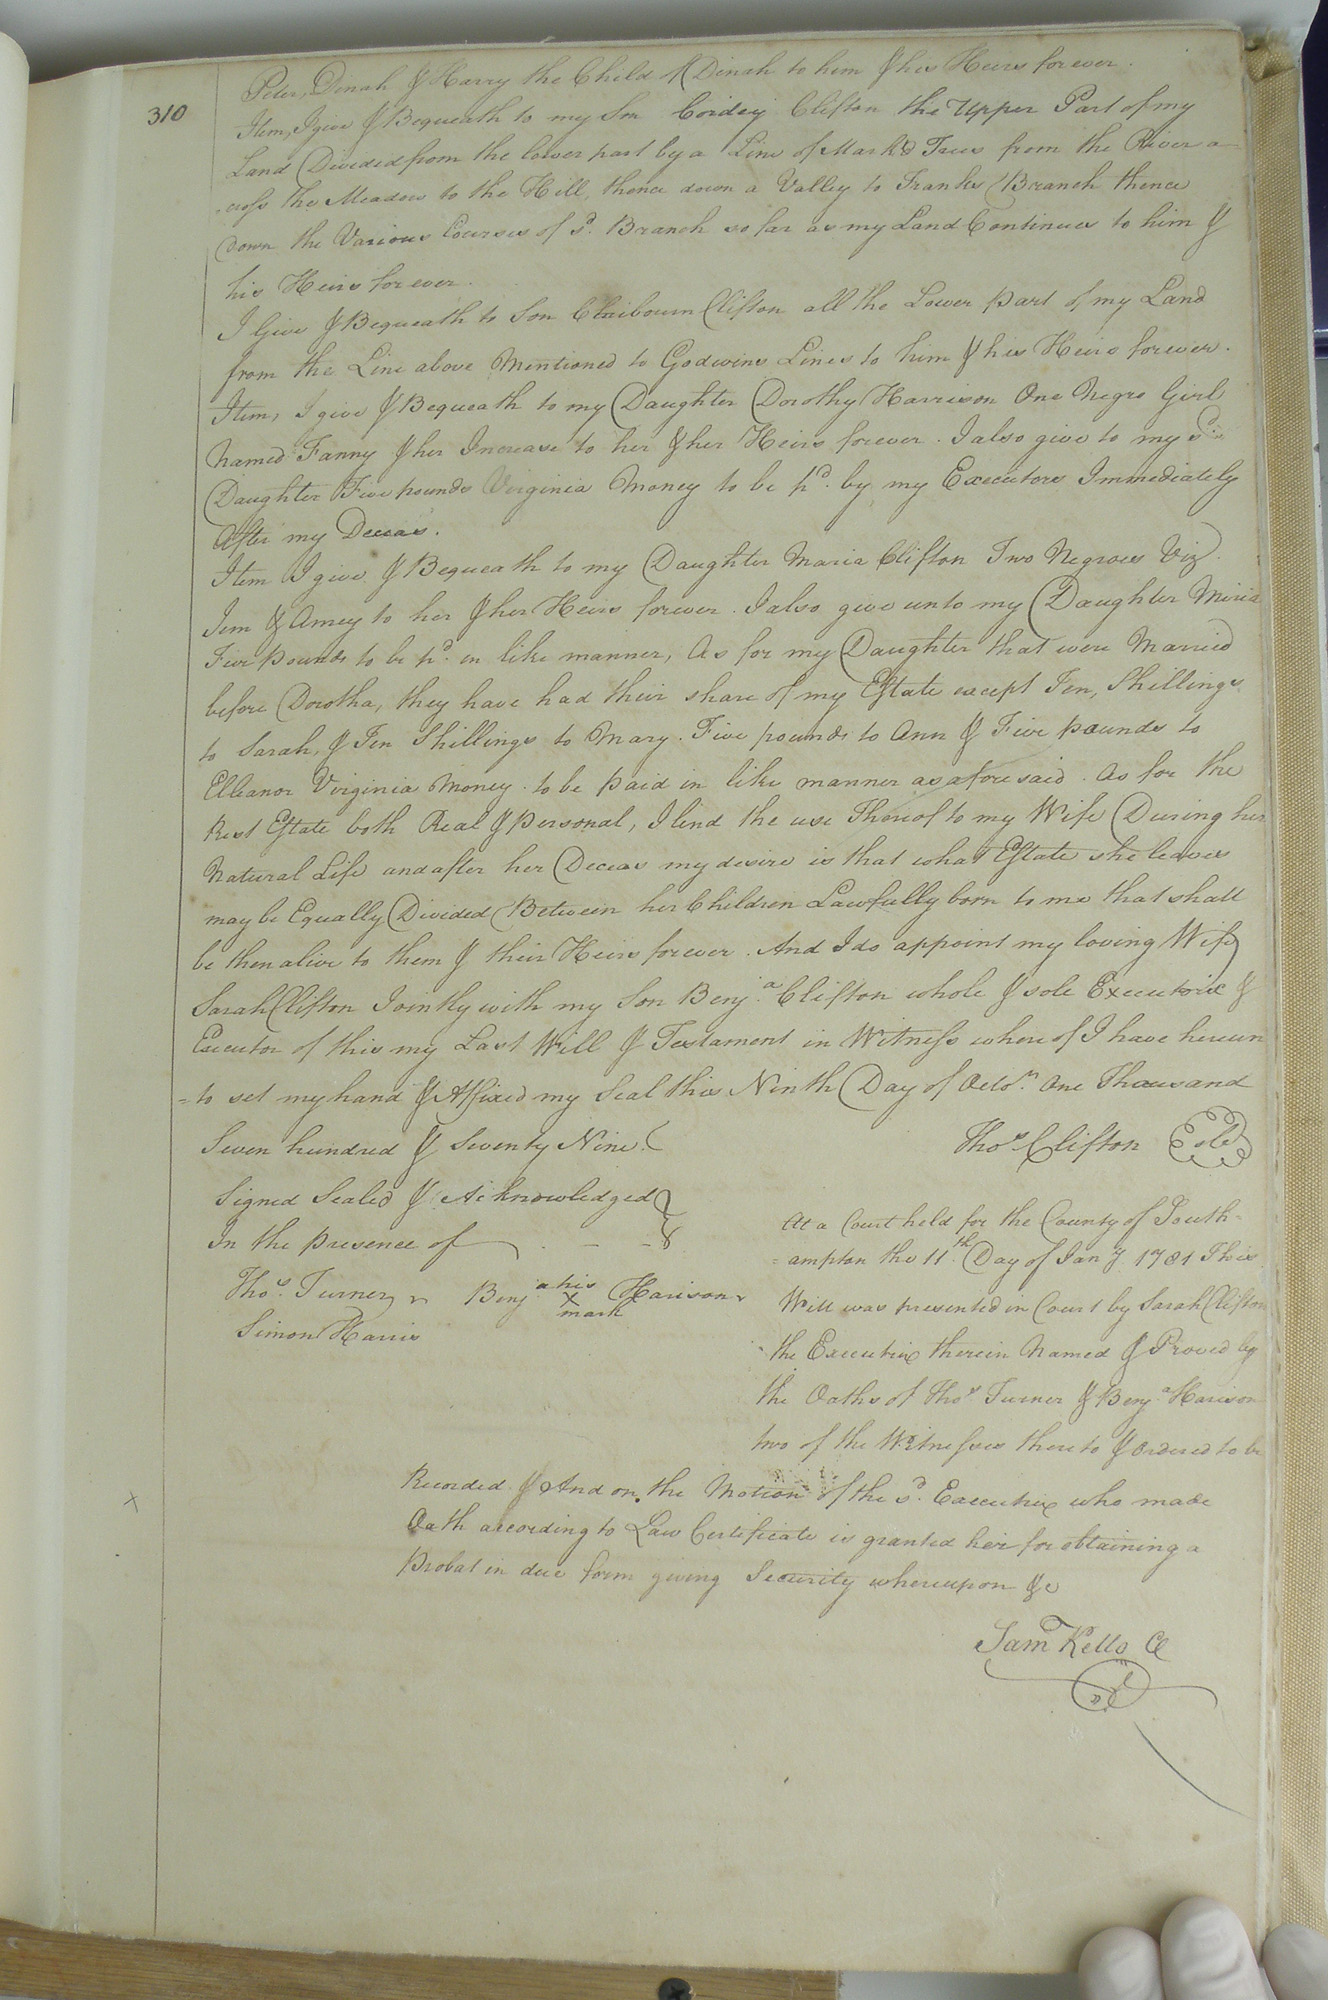 310
Peter, Dinah & Harry the Child of Dinah to him & his Heirs forever.
Item, I give & Bequeath to my Son Cordey Clifton the Upper Part of my
Land Divided from the lower part by a Line of Mark'd Trees from the River a
-cross the Meadow to the Hill, thence down a Valley to Franks Branch thence
Down the Various Courses of sd. Branch so far as my Land Continues to him &
his Heirs forever.
I Give & Bequeath to Son Claibourn Clifton all the Lower part of my Land
from the Line above Mentioned to Godwins Lines to him & his Heirs forever.
Item, I give & Bequeath to my Daughter Dorothy Harrison One Negro Girl
Named Fanny & her Increase to her & her Heirs forever. I also give to my sd.
Daughter Five pounds Virginia Money to be pd. by my Executors Immediately
After my Deceas.
Item I give & Bequeath to my Daughter Maria Clifton Two Negroes Viz.
Jem & Amey to her & her Heirs forever. I also give unto my Daughter Miria
Five pounds to be pd. in like manner, As for my Daughter that were Married
before Dorotha, they have had their share of my Estate except Ten, Shillings
to Sarah, & Ten Shillings to Mary. Five pounds to Ann & Five pounds to
Elleanor Virginia Money. to be paid in like manner as aforesaid. As for the
Rest Estate both Real & Personal, I lend the use Thereof to my Wife During her
Natural Life and after her Deceas my desire is that what Estate she leaves
may be Equally Divided Between her Children Lawfully born to me that shall
be then alive to them & their Heirs forever. And I do appoint my loving Wife
Sarah Clifton Jointly with my Son Benja. Clifton whole & sole Executrix &
Executor of this my Last Will & Testament in Witness where of I have hereun
=to set my hand & Affixed my Seal this Ninth Day of Octor. One Thousand
Seven hundred & Seventy Nine.
Thos. Clifton
Signed Sealed & Acknowledged
In the presence of
Thos. Turner Benja. his X mark Harison
Simon Harris
At a Court held for the County of South=
=ampton the 11th Day of Jany 1781 This
Will was presented in Court by Sarah Clifton
the Executrix therein Named & Proved by
the Oaths of Thos. Turner & Benja. Harison
two of the Witnesses thereto & ordered to be
Recorded & And on the Motion of the sd. Executrix who made
Oath according to Law Certificate is granted her for obtaining a
Probat in due form giving Security whereupon &c
Saml Kello Cl